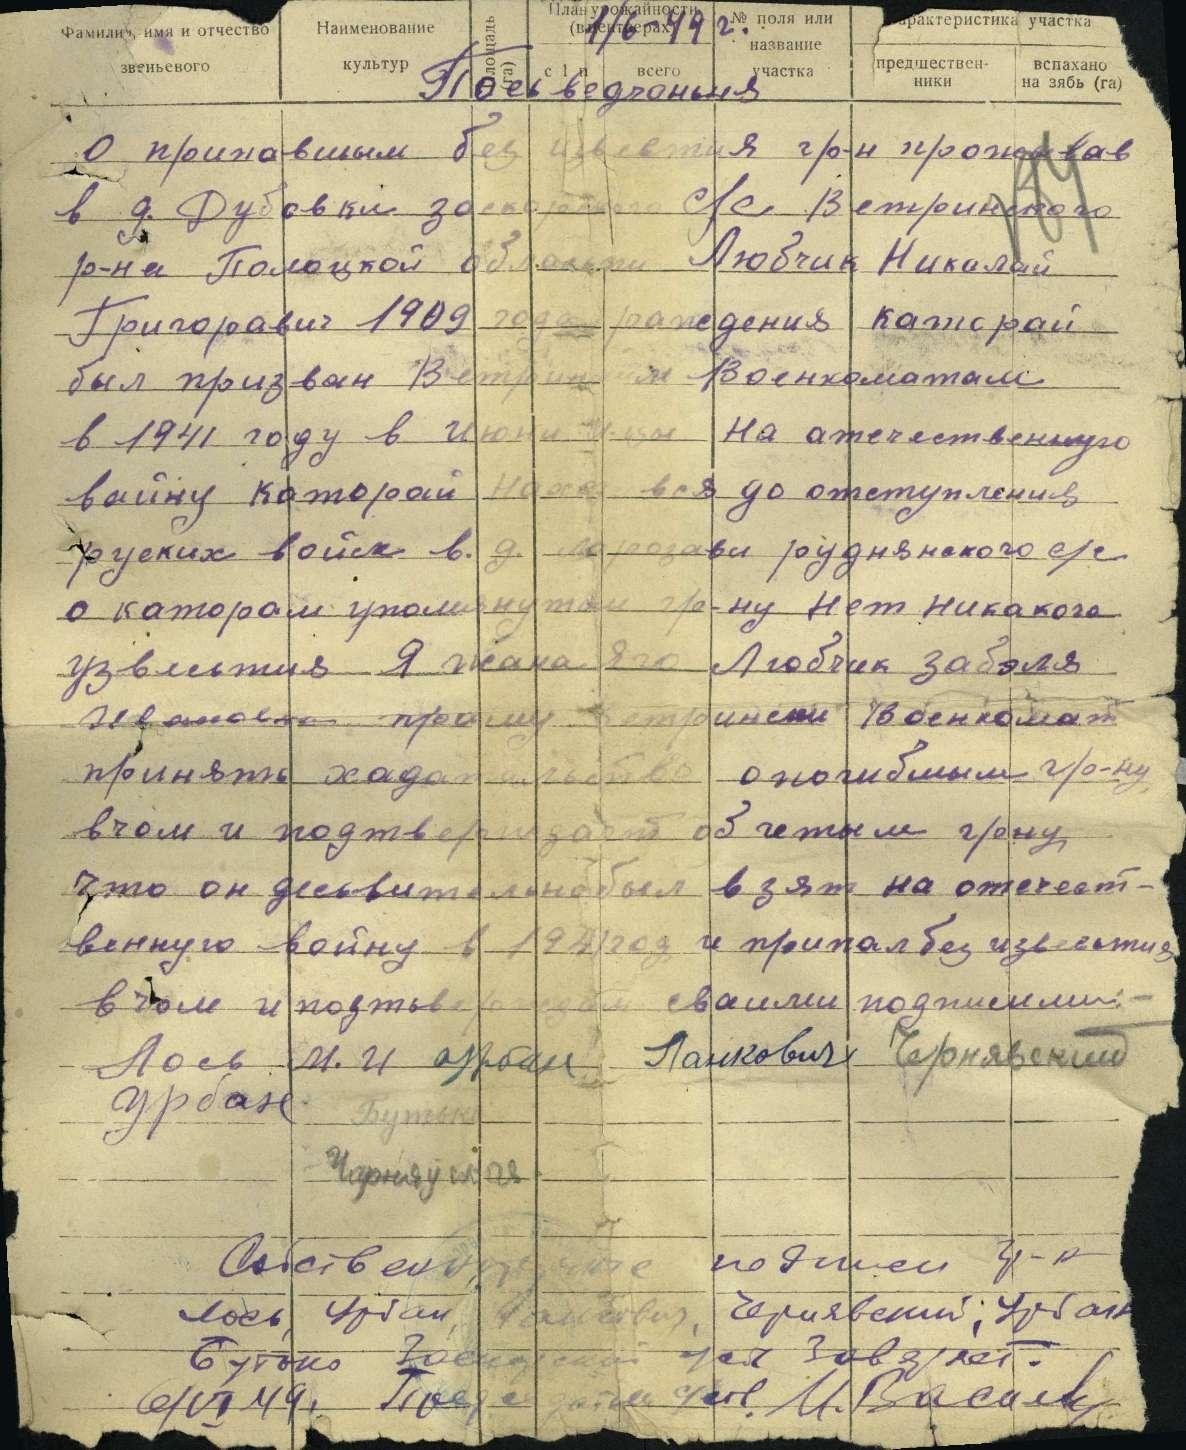 Фамилия, имя и отчество звеньевого
Наименование культур
Площадь (га)
План урожайности (в центнерах)
с 1 га
всего
№ поля или название участка
Характеристика участка
предшественники
вспахано на зябь (га)
1/6-49 г.
Посьведчаньня
о припавшым без известия гр-н прожывав
в д. Дубовки заскорского с/с Ветринского
р-на Полоцкой области Любчик Николай
Григоравич 1909 года раждения каторай
был призван Ветринским Военкоматам
в 1941 году в Июни м-цы на атечественную
вайну каторай находився до отступления
руских войск в. д. морозави руднянского с/с
о каторам упомянутым гр-ну нет никакого
узвесьтия Я жана яго Любчик
Ивановна прашу Ветрински Военкомат
принять хадатальство о погибшым гр-ну
в чом и подтверждаем об этым гр-ну
что он десьвительно был взят на отечест-
венную войну в 1941 год и припал без извесьтия
в чом и подтьверждаем сваими подписими:-
Лось М. И Урбан Панкович Чернявский
Урбан Бутько
Чарняуская
Собственноручные подписи гр-н
Лось, Урбан, Панкович, Чернявский, Урбан
Бутько Заскорский с/сет Заверяет.
6/VI 49. Председатель с/сов. И. Васілев